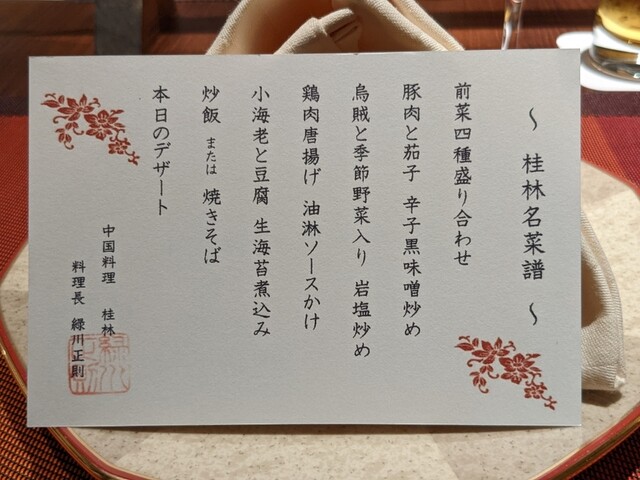 ～ 桂林名菜譜 ～
前菜四種盛り合わせ
豚肉と茄子 辛子黒味噌炒め
烏賊と季節野菜入り 岩塩炒め
鶏肉唐揚げ 油淋ソースかけ
小海老と豆腐 生海苔煮込み
炒飯 または 焼きそば
本日のデザート
中国料理 桂林
料理長 緑川正則